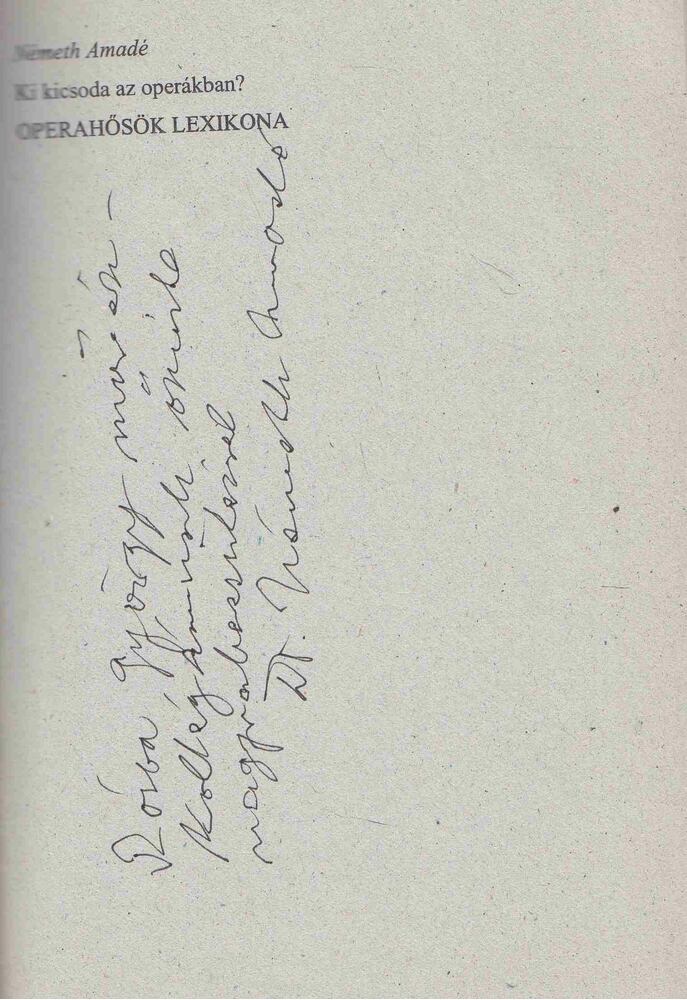 Németh Amadé
Ki kicsoda az operákban?
OPERAHŐSÖK LEXIKONA
György művész-
kollégámnak őszinte
nagyrabecsüléssel
Dr. Németh Amadé